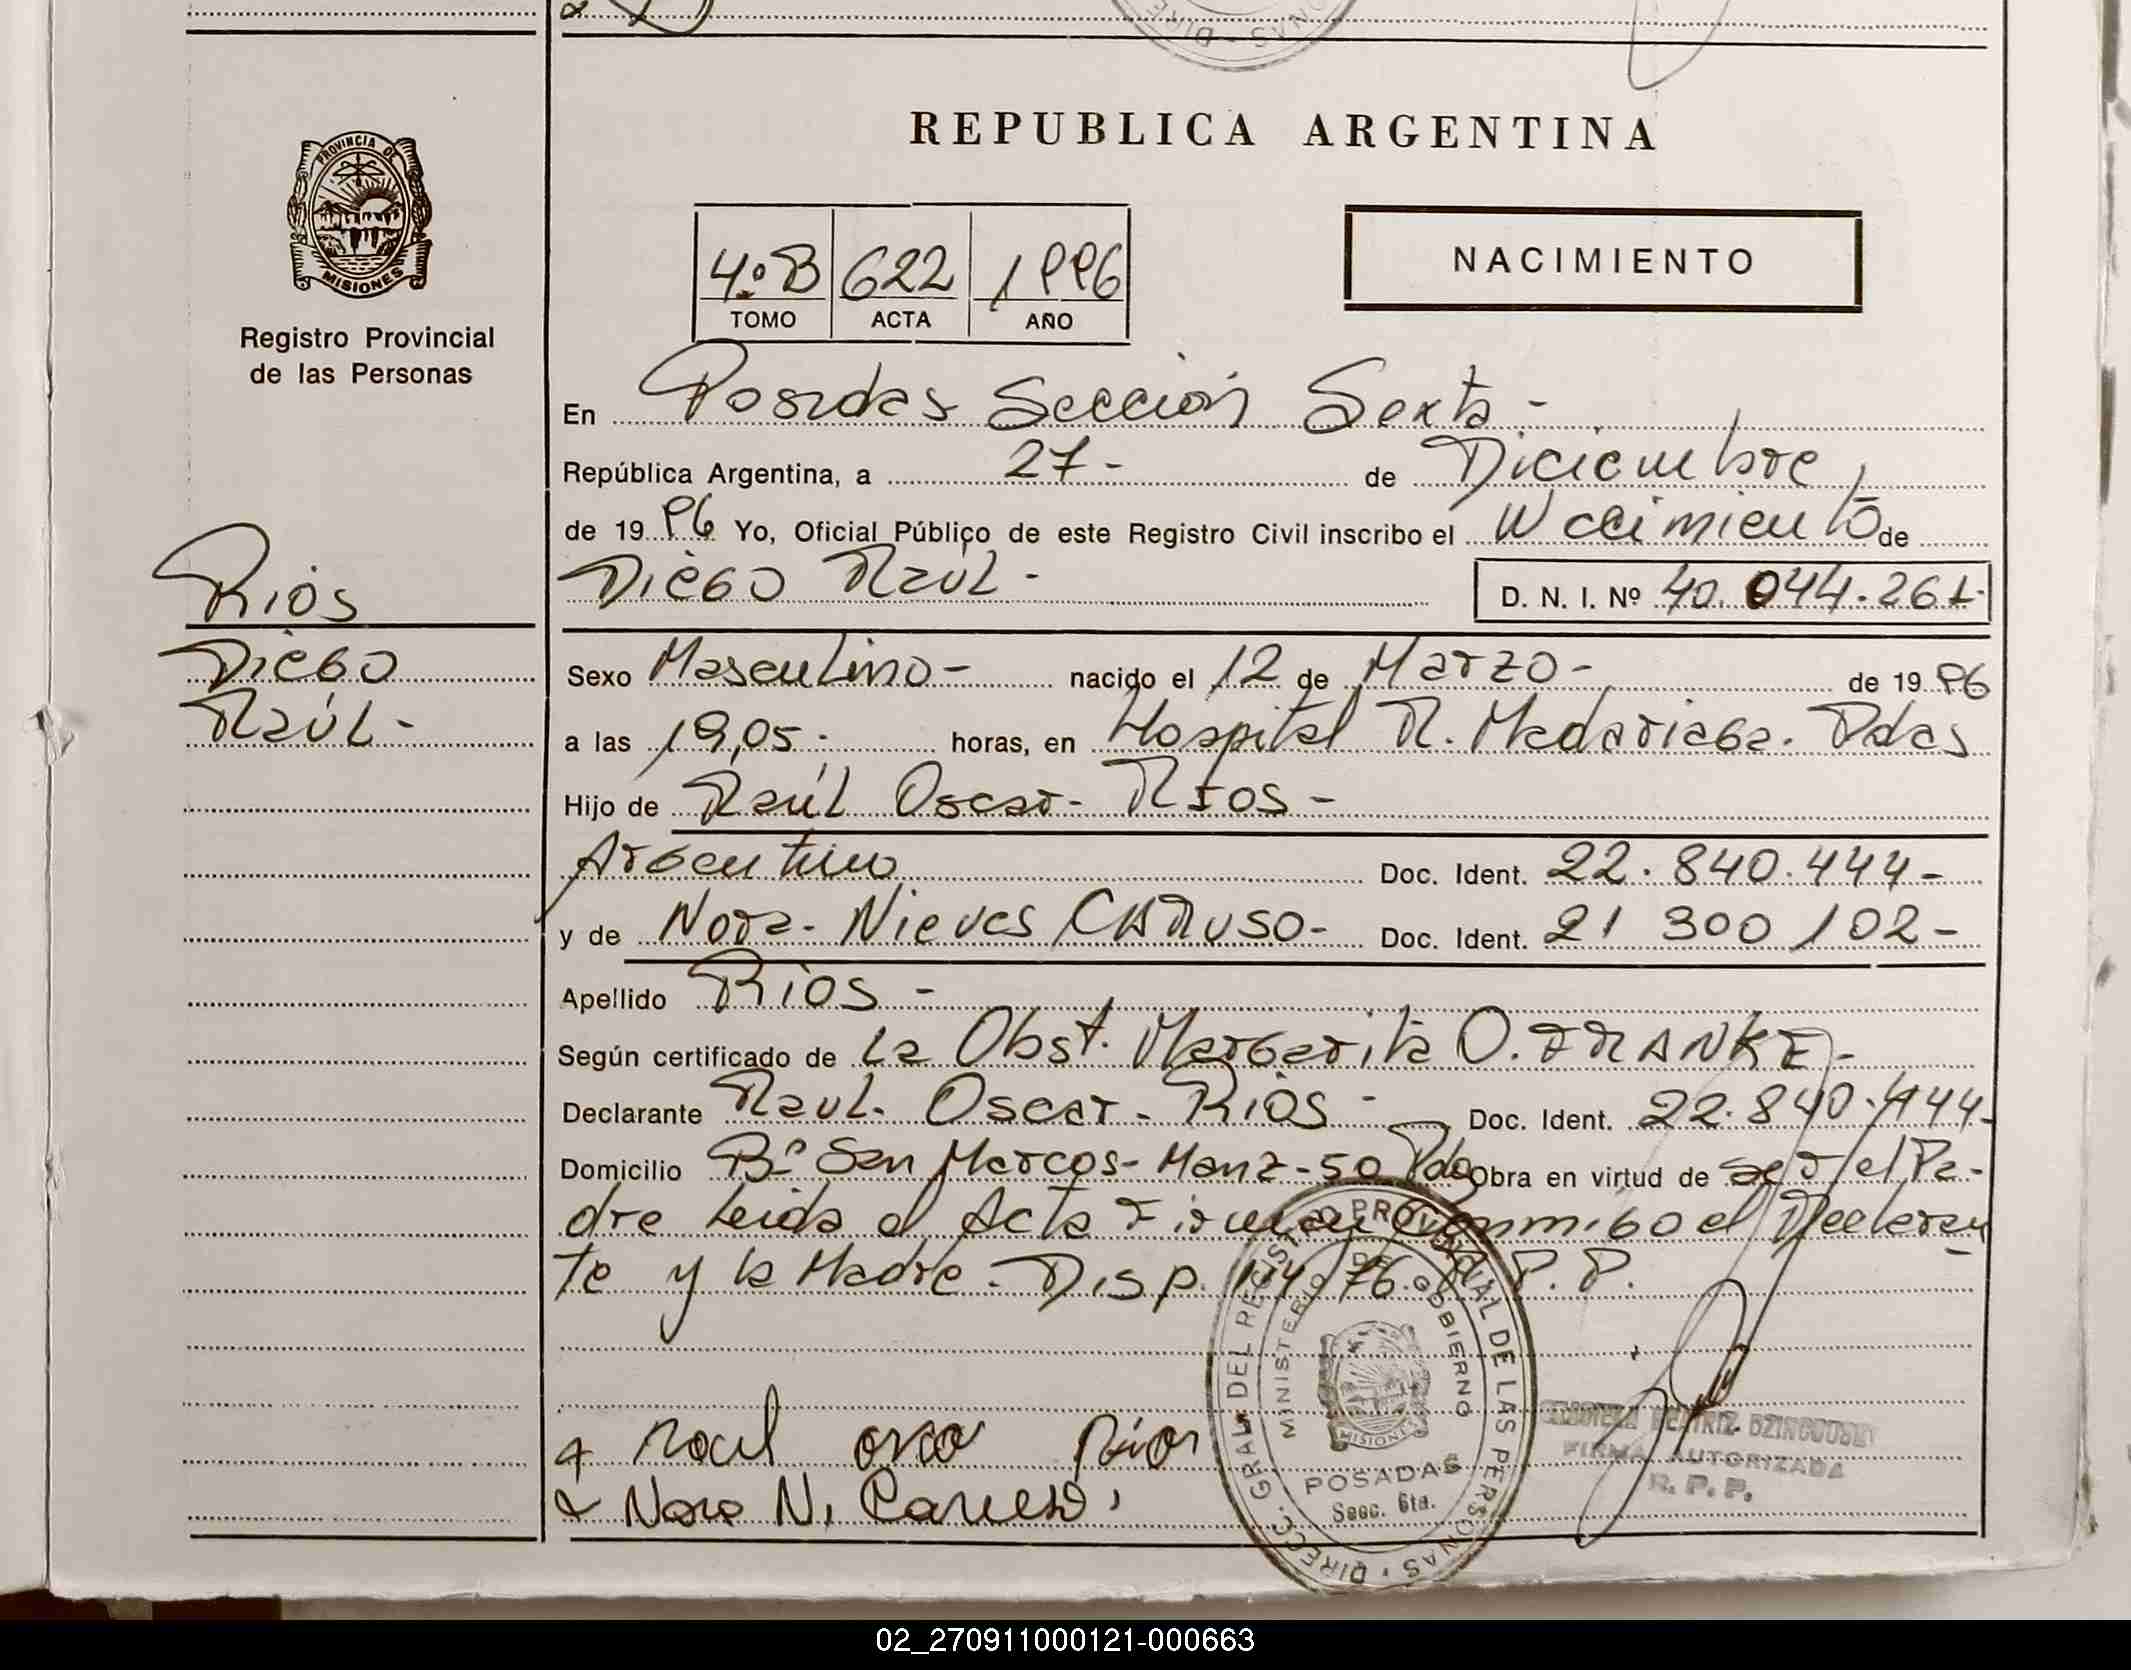 REPUBLICA ARGENTINA
PROVINCIA DE
MISIONES
Registro Provincial
de las Personas
4º B 622 1996
TOMO ACTA AÑO
NACIMIENTO
En Posadas Sección Sexta -
República Argentina, a 27 - de Diciembre,
de 19 96 Yo, Oficial Público de este Registro Civil inscribo el Nacimiento de
Diego Raul - D. N. I. Nº 40.044.261.
Ríos
Diego
Raúl -
Sexo Masculino - nacido el 12 de Marzo - de 19 96
a las 19,05. horas, en Hospital R. Madariaga. Pdas
Hijo de Raúl Oscar - RIOS -
Argentino Doc. Ident. 22.840.444 -
y de Nora - Nieves CARUSO - Doc. Ident. 21 300 102 -
Apellido Rios -
Según certificado de La Obst. Margarita O. FRANKE -
Declarante Raul. Oscar - Ríos - Doc. Ident. 22.840.444 -
Domicilio Bº San Marcos - Manz - 50 Pdas Obra en virtud de ser el Pa-
dre Leida el Acta Firman Conmigo el Declaran
te y la Madre - Disp. 114/76. R.P.P.
Raul Rios
Nora N. Caruso
DIRECC. GRAL. DEL REGISTRO PROVINCIAL DE LAS PERSONAS
MINISTERIO DE GOBIERNO
MISIONES
POSADAS
Secc. 6ta.
BEATRIZ
FIRMA AUTORIZADA
R. P. P.
02_270911000121-000663